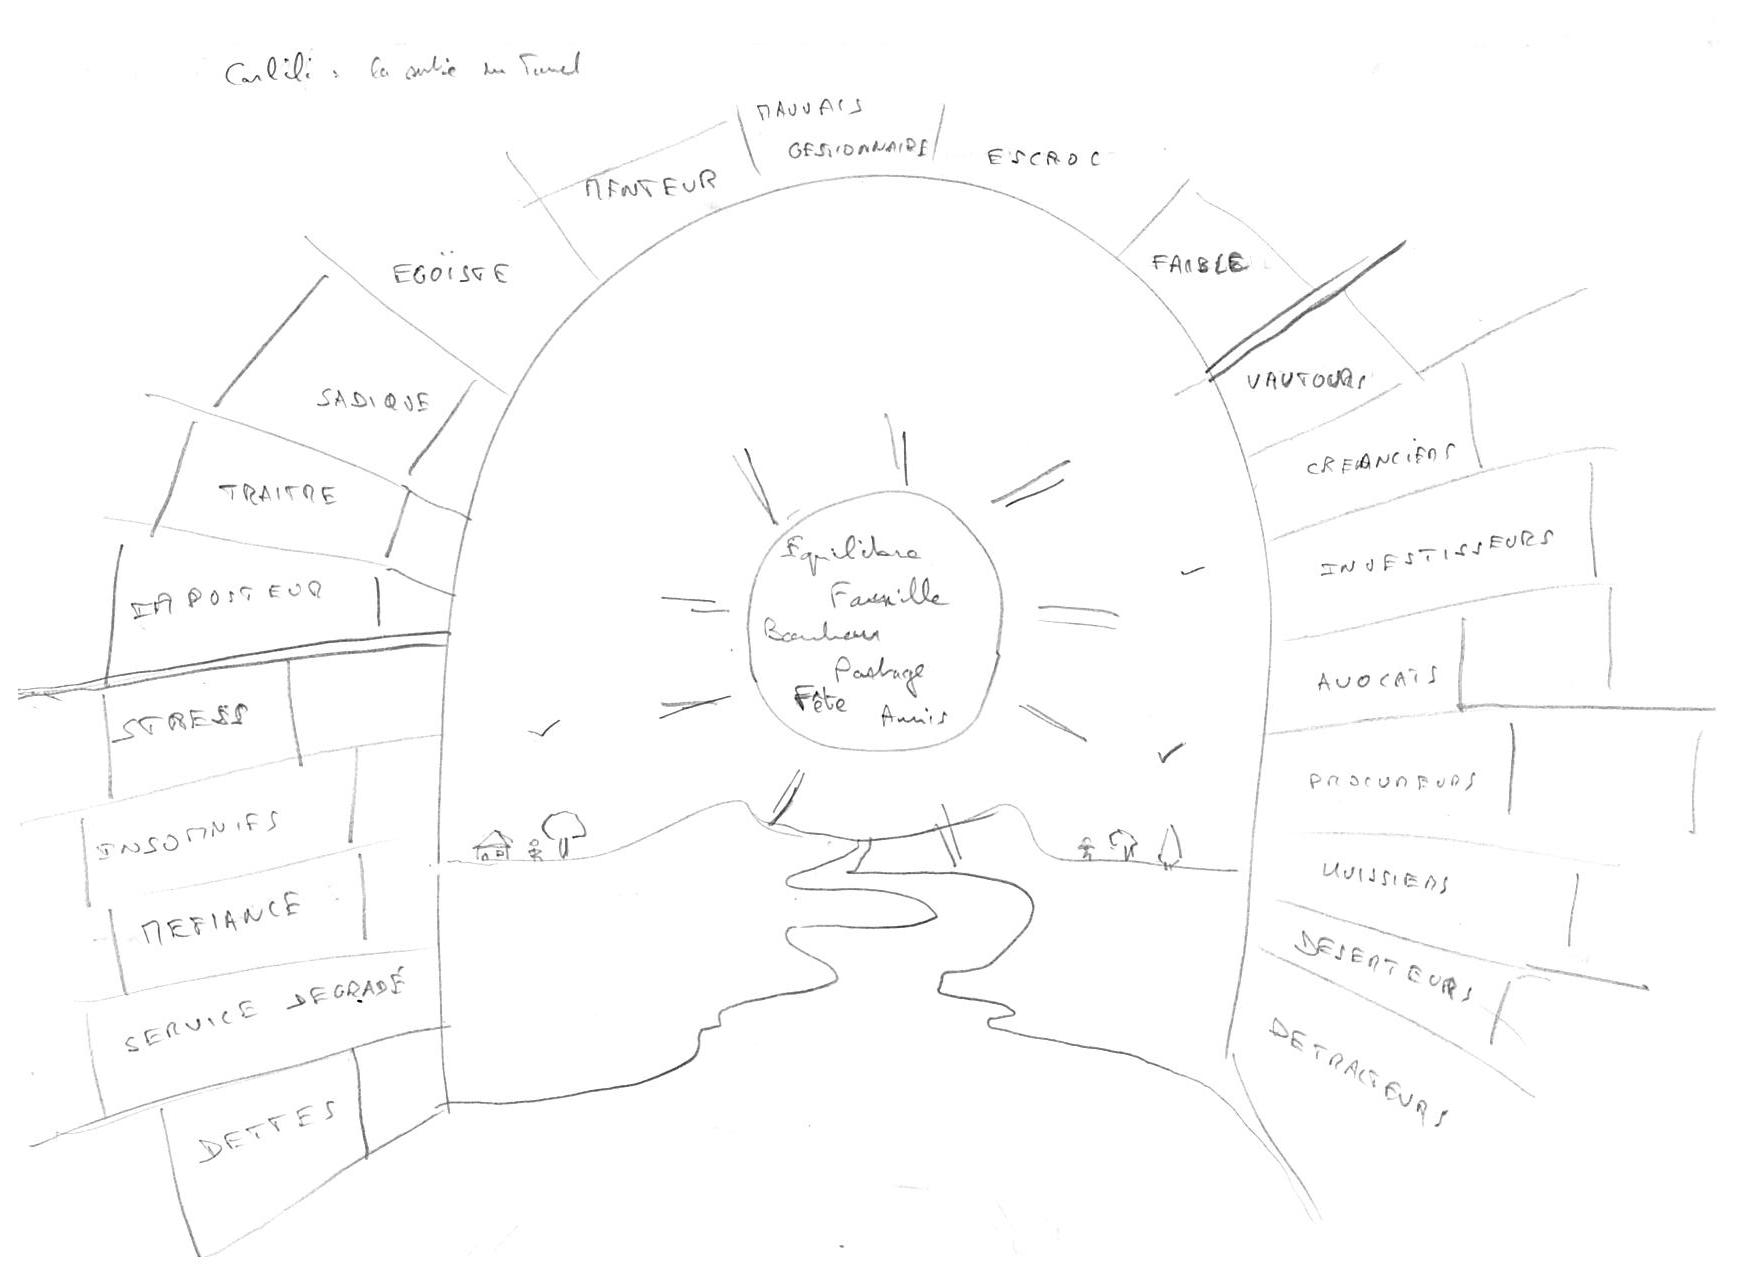 Carlili : la sortie du Tunnel
MAUVAIS
GESTIONNAIRE
ESCROC
MENTEUR
FAIBLE
EGOÏSTE
VAUTOURS
SADIQUE
CREANCIERS
TRAITRE
INVESTISSEURS
IMPOSTEUR
AVOCATS
STRESS
PROCUREURS
INSOMNIES
HUISSIERS
MEFIANCE
DESERTEURS
SERVICE DEGRADÉ
DETRACTEURS
DETTES
Equilibre
Famille
Bonheur
Partage
Fête
Amis